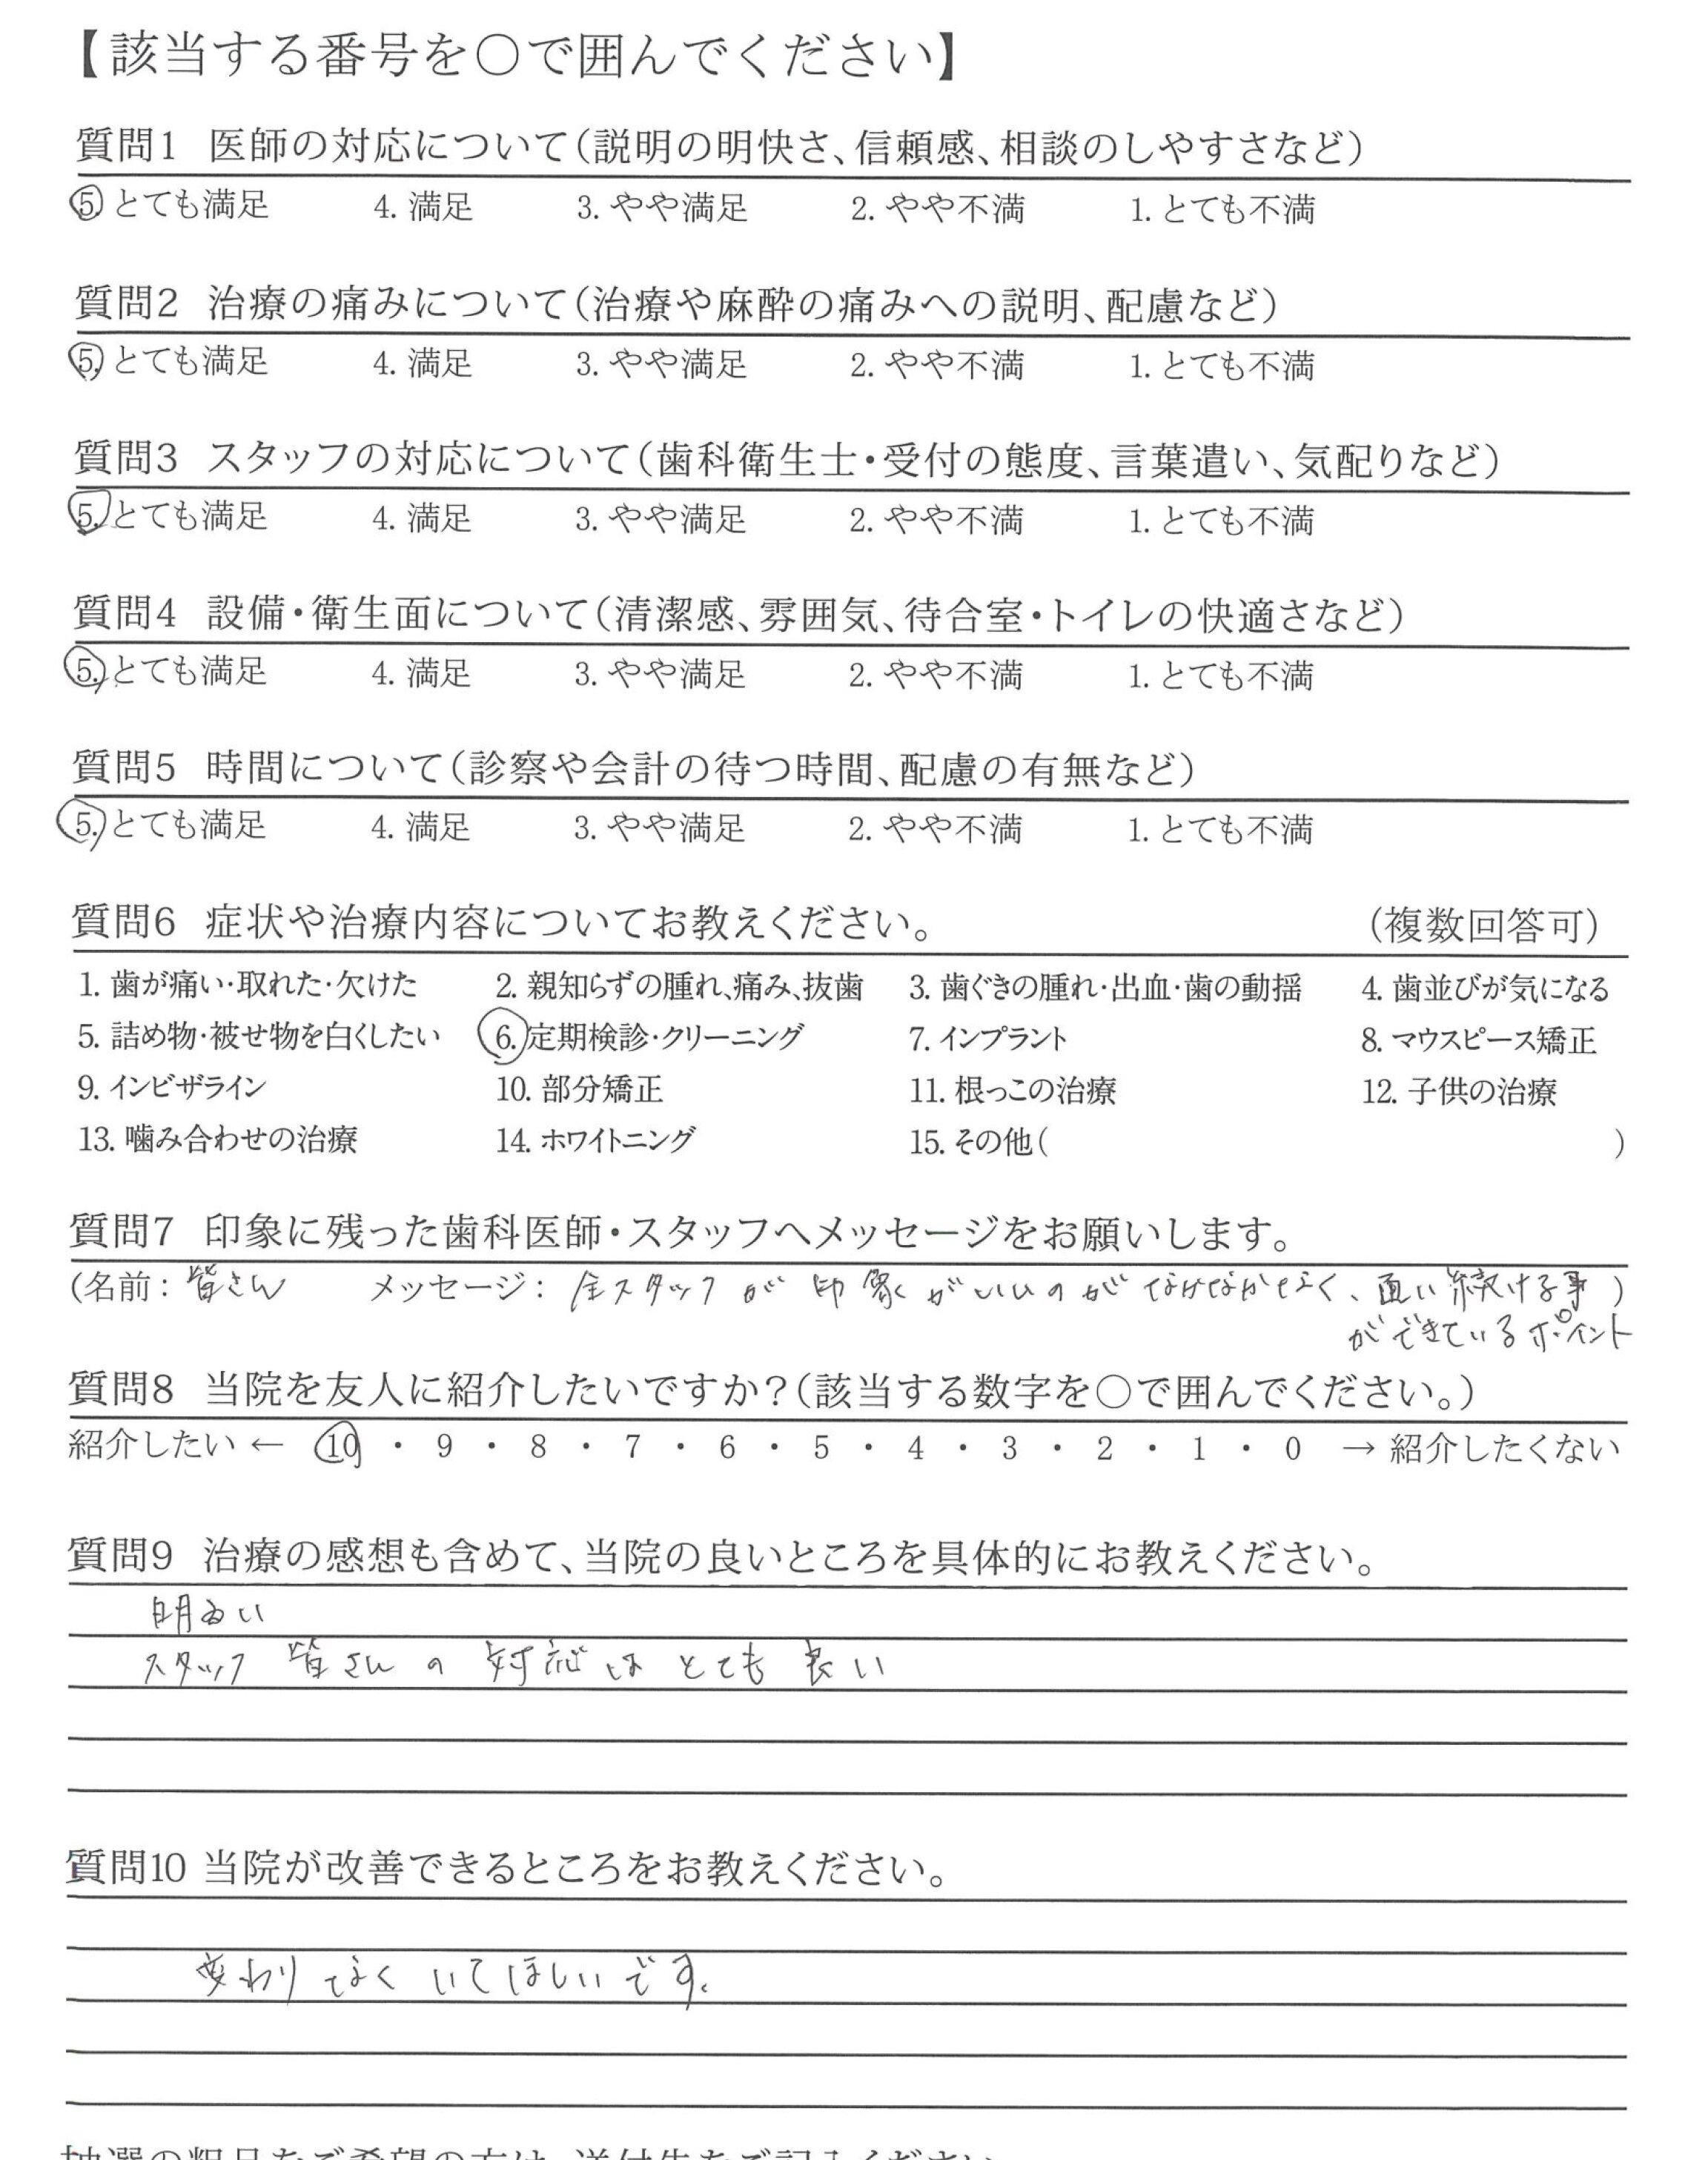 【該当する番号を○で囲んでください】
質問1 医師の対応について(説明の明快さ、信頼感、相談のしやすさなど)
5. とても満足 4. 満足 3. やや満足 2. やや不満 1. とても不満
質問2 治療の痛みについて(治療や麻酔の痛みへの説明、配慮など)
5. とても満足 4. 満足 3. やや満足 2. やや不満 1. とても不満
質問3 スタッフの対応について(歯科衛生士・受付の態度、言葉遣い、気配りなど)
5. とても満足 4. 満足 3. やや満足 2. やや不満 1. とても不満
質問4 設備・衛生面について(清潔感、雰囲気、待合室・トイレの快適さなど)
5. とても満足 4. 満足 3. やや満足 2. やや不満 1. とても不満
質問5 時間について(診察や会計の待つ時間、配慮の有無など)
5. とても満足 4. 満足 3. やや満足 2. やや不満 1. とても不満
質問6 症状や治療内容についてお教えください。 (複数回答可)
1. 歯が痛い・取れた・欠けた 2. 親知らずの腫れ、痛み、抜歯 3. 歯ぐきの腫れ・出血・歯の動揺 4. 歯並びが気になる
5. 詰め物・被せ物を白くしたい 6. 定期検診・クリーニング 7. インプラント 8. マウスピース矯正
9. インビザライン 10. 部分矯正 11. 根っこの治療 12. 子供の治療
13. 噛み合わせの治療 14. ホワイトニング 15. その他( )
質問7 印象に残った歯科医師・スタッフへメッセージをお願いします。
(名前: 皆さん メッセージ: 全スタッフが印象がいいのがなかなかなく、通い続ける事)
ができているポイント
質問8 当院を友人に紹介したいですか?(該当する数字を○で囲んでください。)
紹介したい ← 10 ・ 9 ・ 8 ・ 7 ・ 6 ・ 5 ・ 4 ・ 3 ・ 2 ・ 1 ・ 0 → 紹介したくない
質問9 治療の感想も含めて、当院の良いところを具体的にお教えください。
明るい
スタッフ 皆さんの 対応は とても 良い
質問10 当院が改善できるところをお教えください。
変わりなく いてほしいです。
抽選の粗品をご希望の方は、送付先をご記入ください